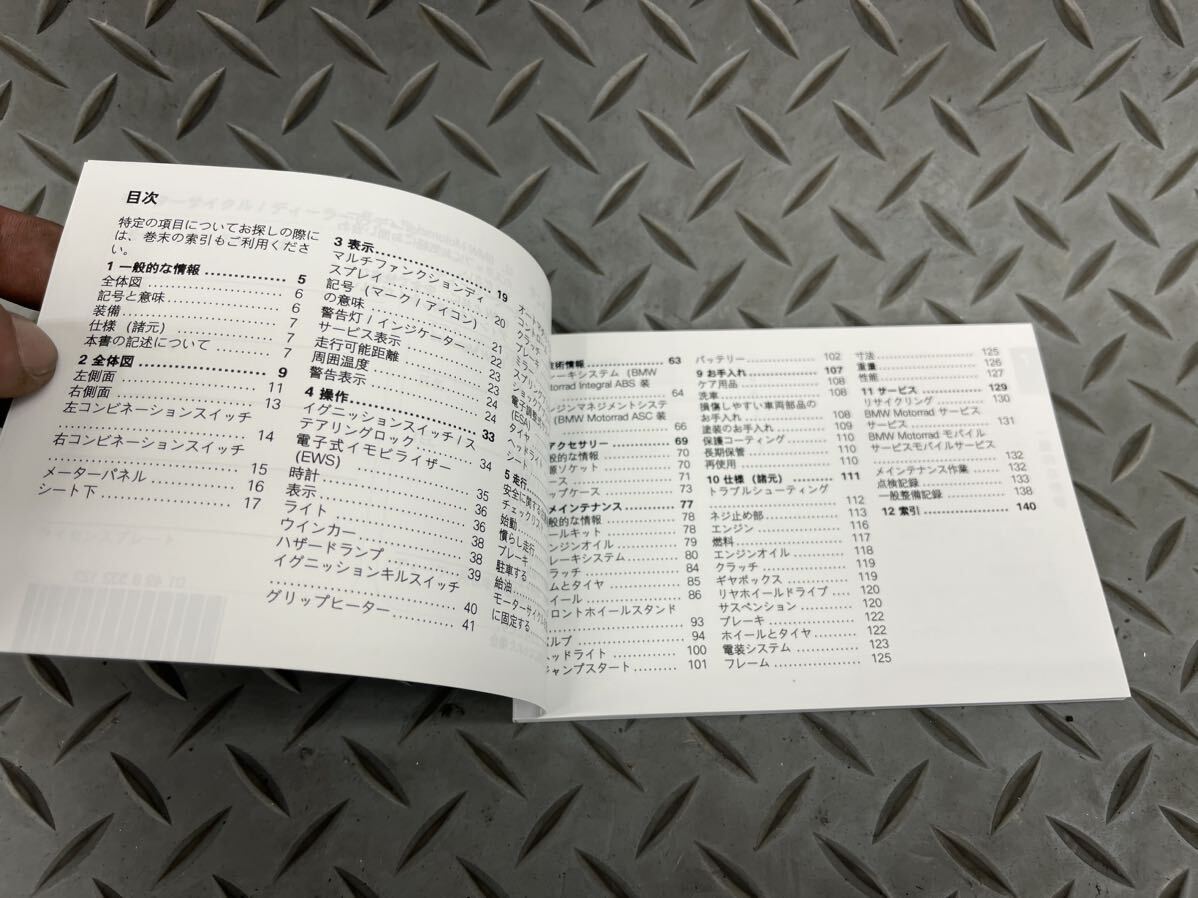 目次
特定の項目についてお探しの際に
は、巻末の索引もご利用くださ
い。
1 一般的な情報 5
全体図 6
記号と意味 6
装備 7
仕様（諸元） 7
本書の記述について 7
2 全体図 9
左側面 11
右側面 13
左コンビネーションスイッチ
14
右コンビネーションスイッチ
15
メーターパネル 16
シート下 17
3 表示 19
マルチファンクションディ
スプレイ 20
記号（マーク / アイコン）
の意味 21
警告灯 / インジケーター 22
サービス表示 23
走行可能距離 23
周囲温度 24
警告表示 24
4 操作 33
イグニッションスイッチ / ス
テアリングロック 34
電子式イモビライザー
(EWS) 35
時計 36
表示 36
ライト 38
ウインカー 38
ハザードランプ 39
イグニッションキルスイッチ
40
グリップヒーター 41
クラッチ
ブレーキ
ミラー
スプリング
(ESA)
タイヤ
ヘッドライト
シート
5 走行
安全に関する
チェックリス
始動
慣らし走行
ブレーキ
駐車する
給油
モーターサイクル
に固定する
術情報 63
ーキシステム（BMW
otorrad Integral ABS 装
64
ンジンマネジメントシステ
（BMW Motorrad ASC 装
66
アクセサリー 69
般的な情報 70
源ソケット 70
ース 71
ップケース 73
メインテナンス 77
般的な情報 78
ールキット 78
ンジンオイル 79
レーキシステム 80
ラッチ 84
ムとタイヤ 85
イール 86
ロントホイールスタンド
93
バルブ 94
ヘッドライト 100
ジャンプスタート 101
バッテリー 102
9 お手入れ 107
ケア用品 108
洗車 108
損傷しやすい車両部品の
お手入れ 108
塗装のお手入れ 109
保護コーティング 110
長期保管 110
再使用 110
10 仕様（諸元） 111
トラブルシューティング
112
ネジ止め部 113
エンジン 116
燃料 117
エンジンオイル 118
クラッチ 119
ギヤボックス 119
リヤホイールドライブ 120
サスペンション 120
ブレーキ 122
ホイールとタイヤ 122
電装システム 123
フレーム 125
寸法 125
重量 126
性能 127
11 サービス 129
リサイクリング 130
BMW Motorrad サービス
サービス 131
BMW Motorrad モバイル
サービスモバイルサービス
132
メインテナンス作業 132
点検記録 133
一般整備記録 138
12 索引 140